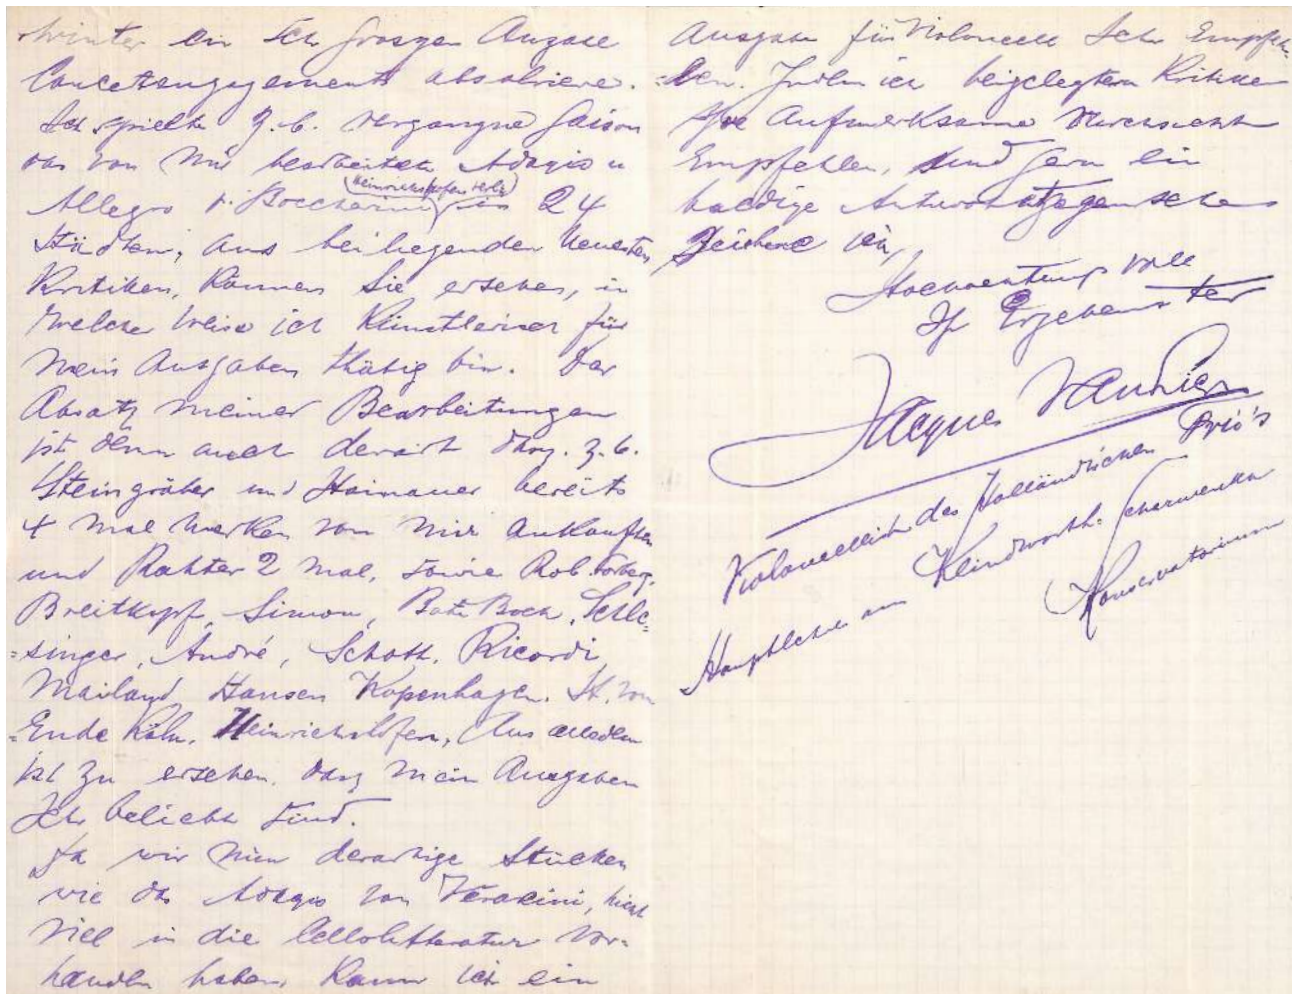 Winter ein sehr grosse Anzale
Concertengagements absolviere.
Ich spielte z.b. vergangne Saison
das von mir bearbeitete Adagio u
Allegro v. Boccherini (Heinrichshofen Verlg) in 24
Städten, aus beiliegenden neuesten
Kritiken, können Sie ersehen, in
welcher Weise ich Künstlerisch für
mein Ausgaben thätig bin. Der
Absatz meiner Bearbeitungen
ist denn auch derart dasz z.b.
Steingräber und Hainauer bereits
4 mal Werken von mir ankauften
und Rahter 2 mal, sowie Rob. Forberg,
Breitkopf, Simon, Bote Bock, Schle=
=singer, André, Schott, Ricordi,
Mailand Hansen Kopenhagen. H. vom
=Ende Köln. Heinrichshofen, Aus alledem
ist zu ersehen, dasz mein Ausgaben
sehr beliebt sind.
Da wir nun derartige Stücken
wie das Adagio von Veracini, nicht
viel in die Cellolitteratur vor=
handen haben, kann ich ein
Ausgabe für Violoncell sehr Empfeh=
=len. Indem ich beigelegten Kritiken
Ihre Aufmerksame Durchsicht
Empfehlen, und gern ein
baldige Antwort entgegensehen
Zeichne ich,
Hochachtungsvoll
Ihr Ergebenster
Jacques van Lier
Violoncellist des Holländischen Trio's
Hauptlehrer am Klindworth-Scharwenka
Konservatorium